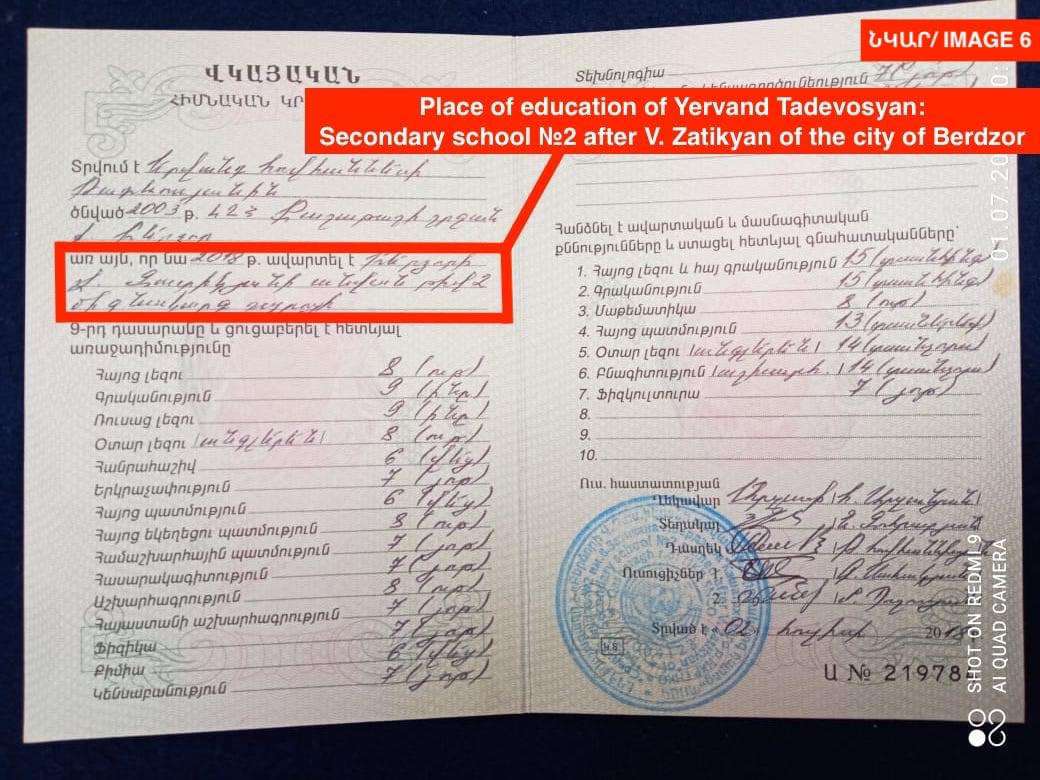 ՆԿԱՐ/ IMAGE 6
Place of education of Yervand Tadevosyan:
Secondary school №2 after V. Zatikyan of the city of Berdzor
ՎԿԱՅԱԿԱՆ
ՀԻՄՆԱԿԱՆ ԿՐ
Տրվում է Երվանդ Հովհաննեսի
Թադևոսյանին
ծնված 2003 թ. ԼՂՀ Քաշաթաղի շրջան
ք. Բերձոր
առ այն, որ նա 2018 թ. ավարտել է Բերձորի
թիվ 2
միջնակարգ դպրոցի
9-րդ դասարանը և ցուցաբերել է հետևյալ
առաջադիմությունը
Հայոց լեզու 8 (ութ)
Գրականություն 9 (ինը)
Ռուսաց լեզու 9 (ինը)
Օտար լեզու /անգլերեն/ 8 (ութ)
Հանրահաշիվ 6 (վեց)
Երկրաչափություն 7 (յոթ)
Հայոց պատմություն 6 (վեց)
Հայոց եկեղեցու պատմություն 8 (ութ)
Համաշխարհային պատմություն 7 (յոթ)
Հասարակագիտություն 7 (յոթ)
Աշխարհագրություն 8 (ութ)
Հայաստանի աշխարհագրություն 7 (յոթ)
Ֆիզիկա 7 (յոթ)
Քիմիա 6 (վեց)
Կենսաբանություն 7 (յոթ)
Տեխնոլոգիա
7 (յոթ)
Հանձնել է ավարտական և մասնագիտական
քննությունները և ստացել հետևյալ գնահատականները՝
1. Հայոց լեզու և հայ գրականություն 15 (տասնհինգ)
2. Գրականություն 15 (տասնհինգ)
3. Մաթեմատիկա 8 (ութ)
4. Հայոց պատմություն 13 (տասներեք)
5. Օտար լեզու /անգլերեն/ 14 (տասնչորս)
6. Բնագիտություն /աշխարհ./ 14 (տասնչորս)
7. Ֆիզկուլտուրա 7 (յոթ)
8.
9.
10.
Ուս. հաստատության
Ղեկավար
Տեղակալ
Դասղեկ
Ուսուցիչներ 1.
2.
Տրված է «02» հուլիսի 2018
Ա № 219784
01.07.20
SHOT ON REDMI 9
AI QUAD CAMERA